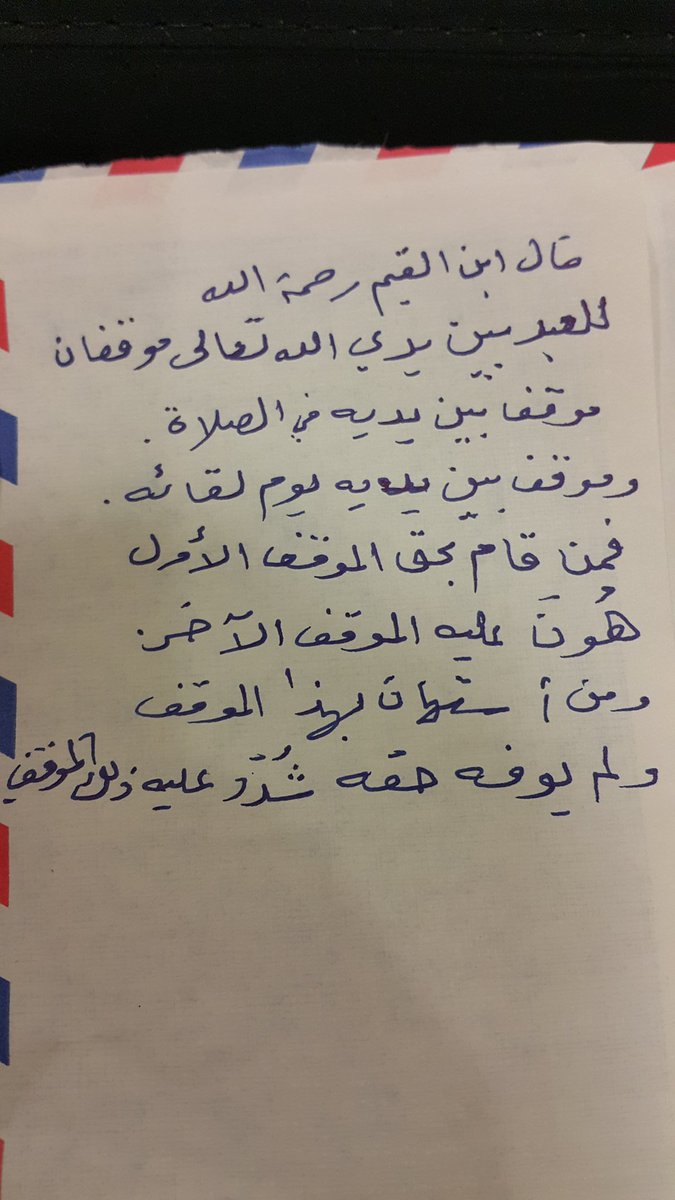 قال ابن القيم رحمة الله
للعبد بين يدي الله تعالى موقفان
موقف بين يديه في الصلاة .
وموقف بين يديه يوم لقائه .
فمن قام بحق الموقف الأول
هُونَ عليه الموقف الآخر .
ومن أستهان بهذا الموقف
ولم يوفه حقه شُدّد عليه ذلك الموقف